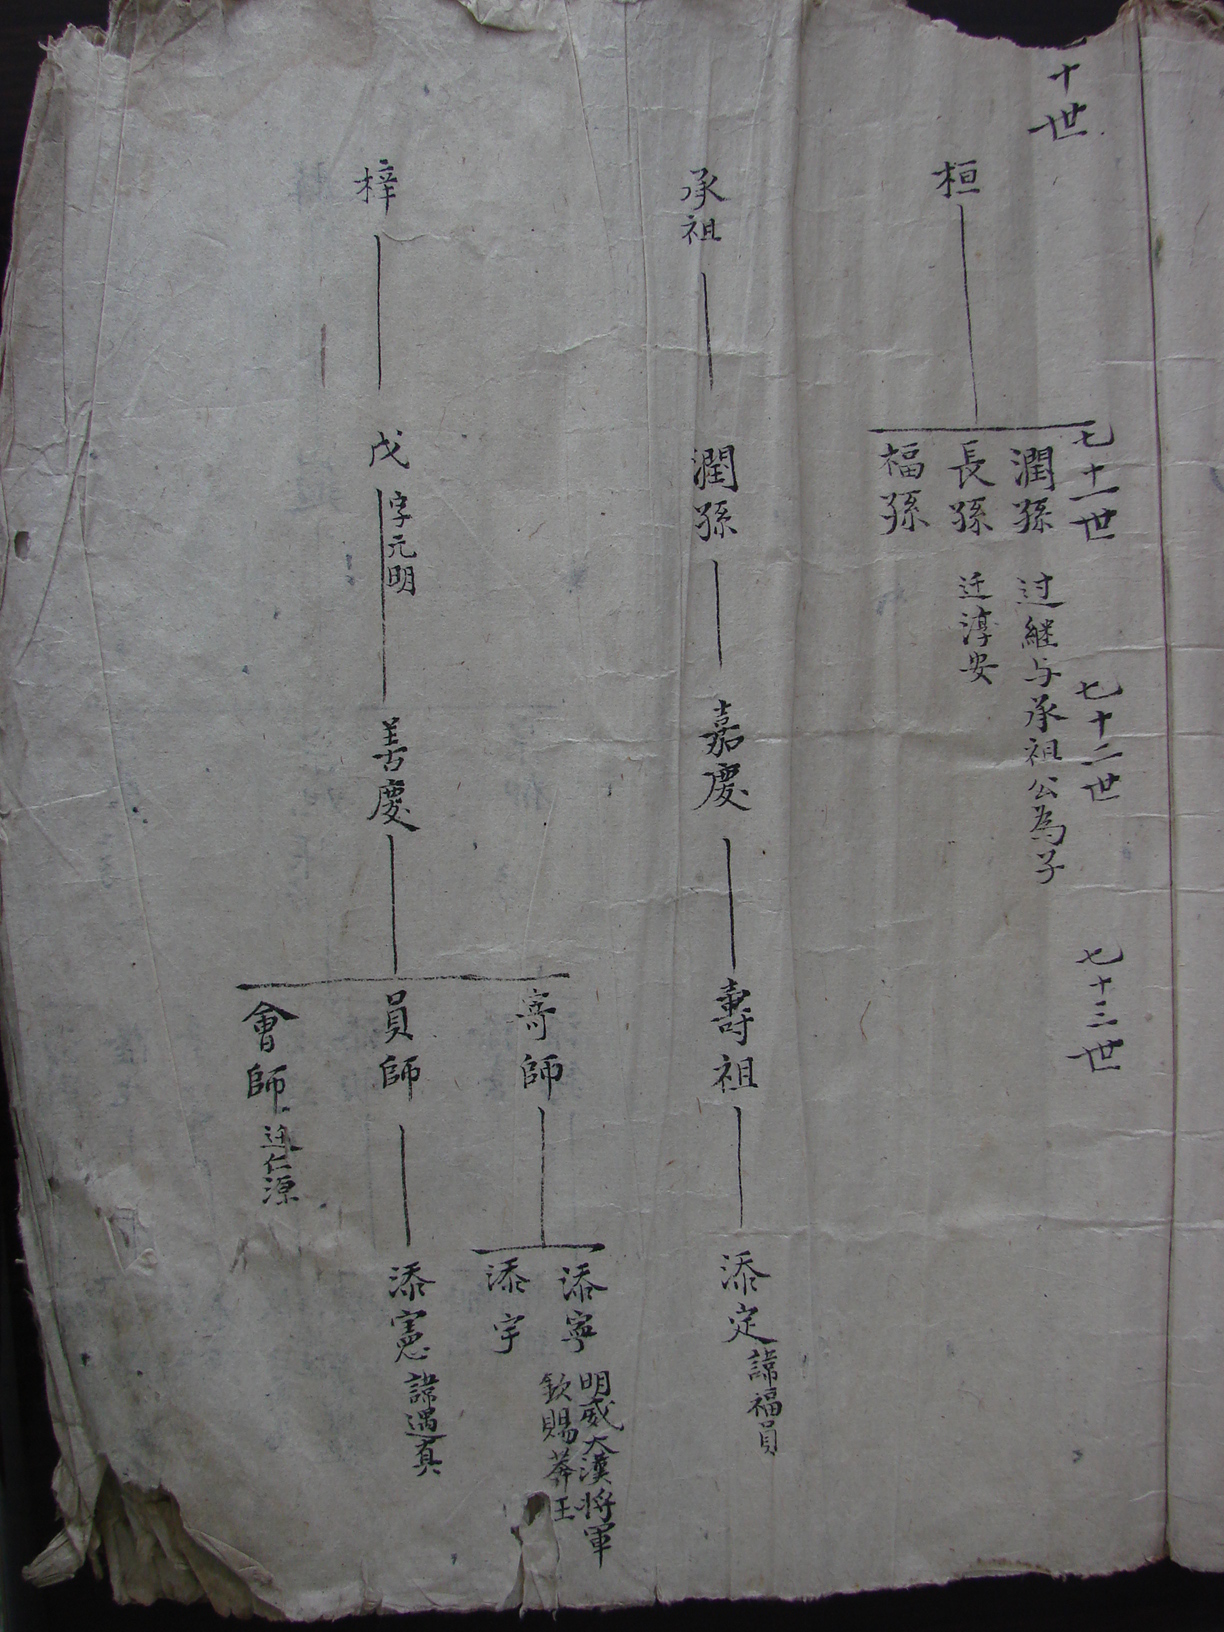 十世
七十一世
七十二世
七十三世
桓
潤孫 过継与承祖公為子
長孫 迁淳安
福孫
承祖
潤孫
嘉慶
壽祖
添定 諱福員
梓
戊 字元明
善慶
寄師
添寧 明威大漢将軍
欽賜莽王
添宇
員師
添憲 諱遇真
會師 迁仁源